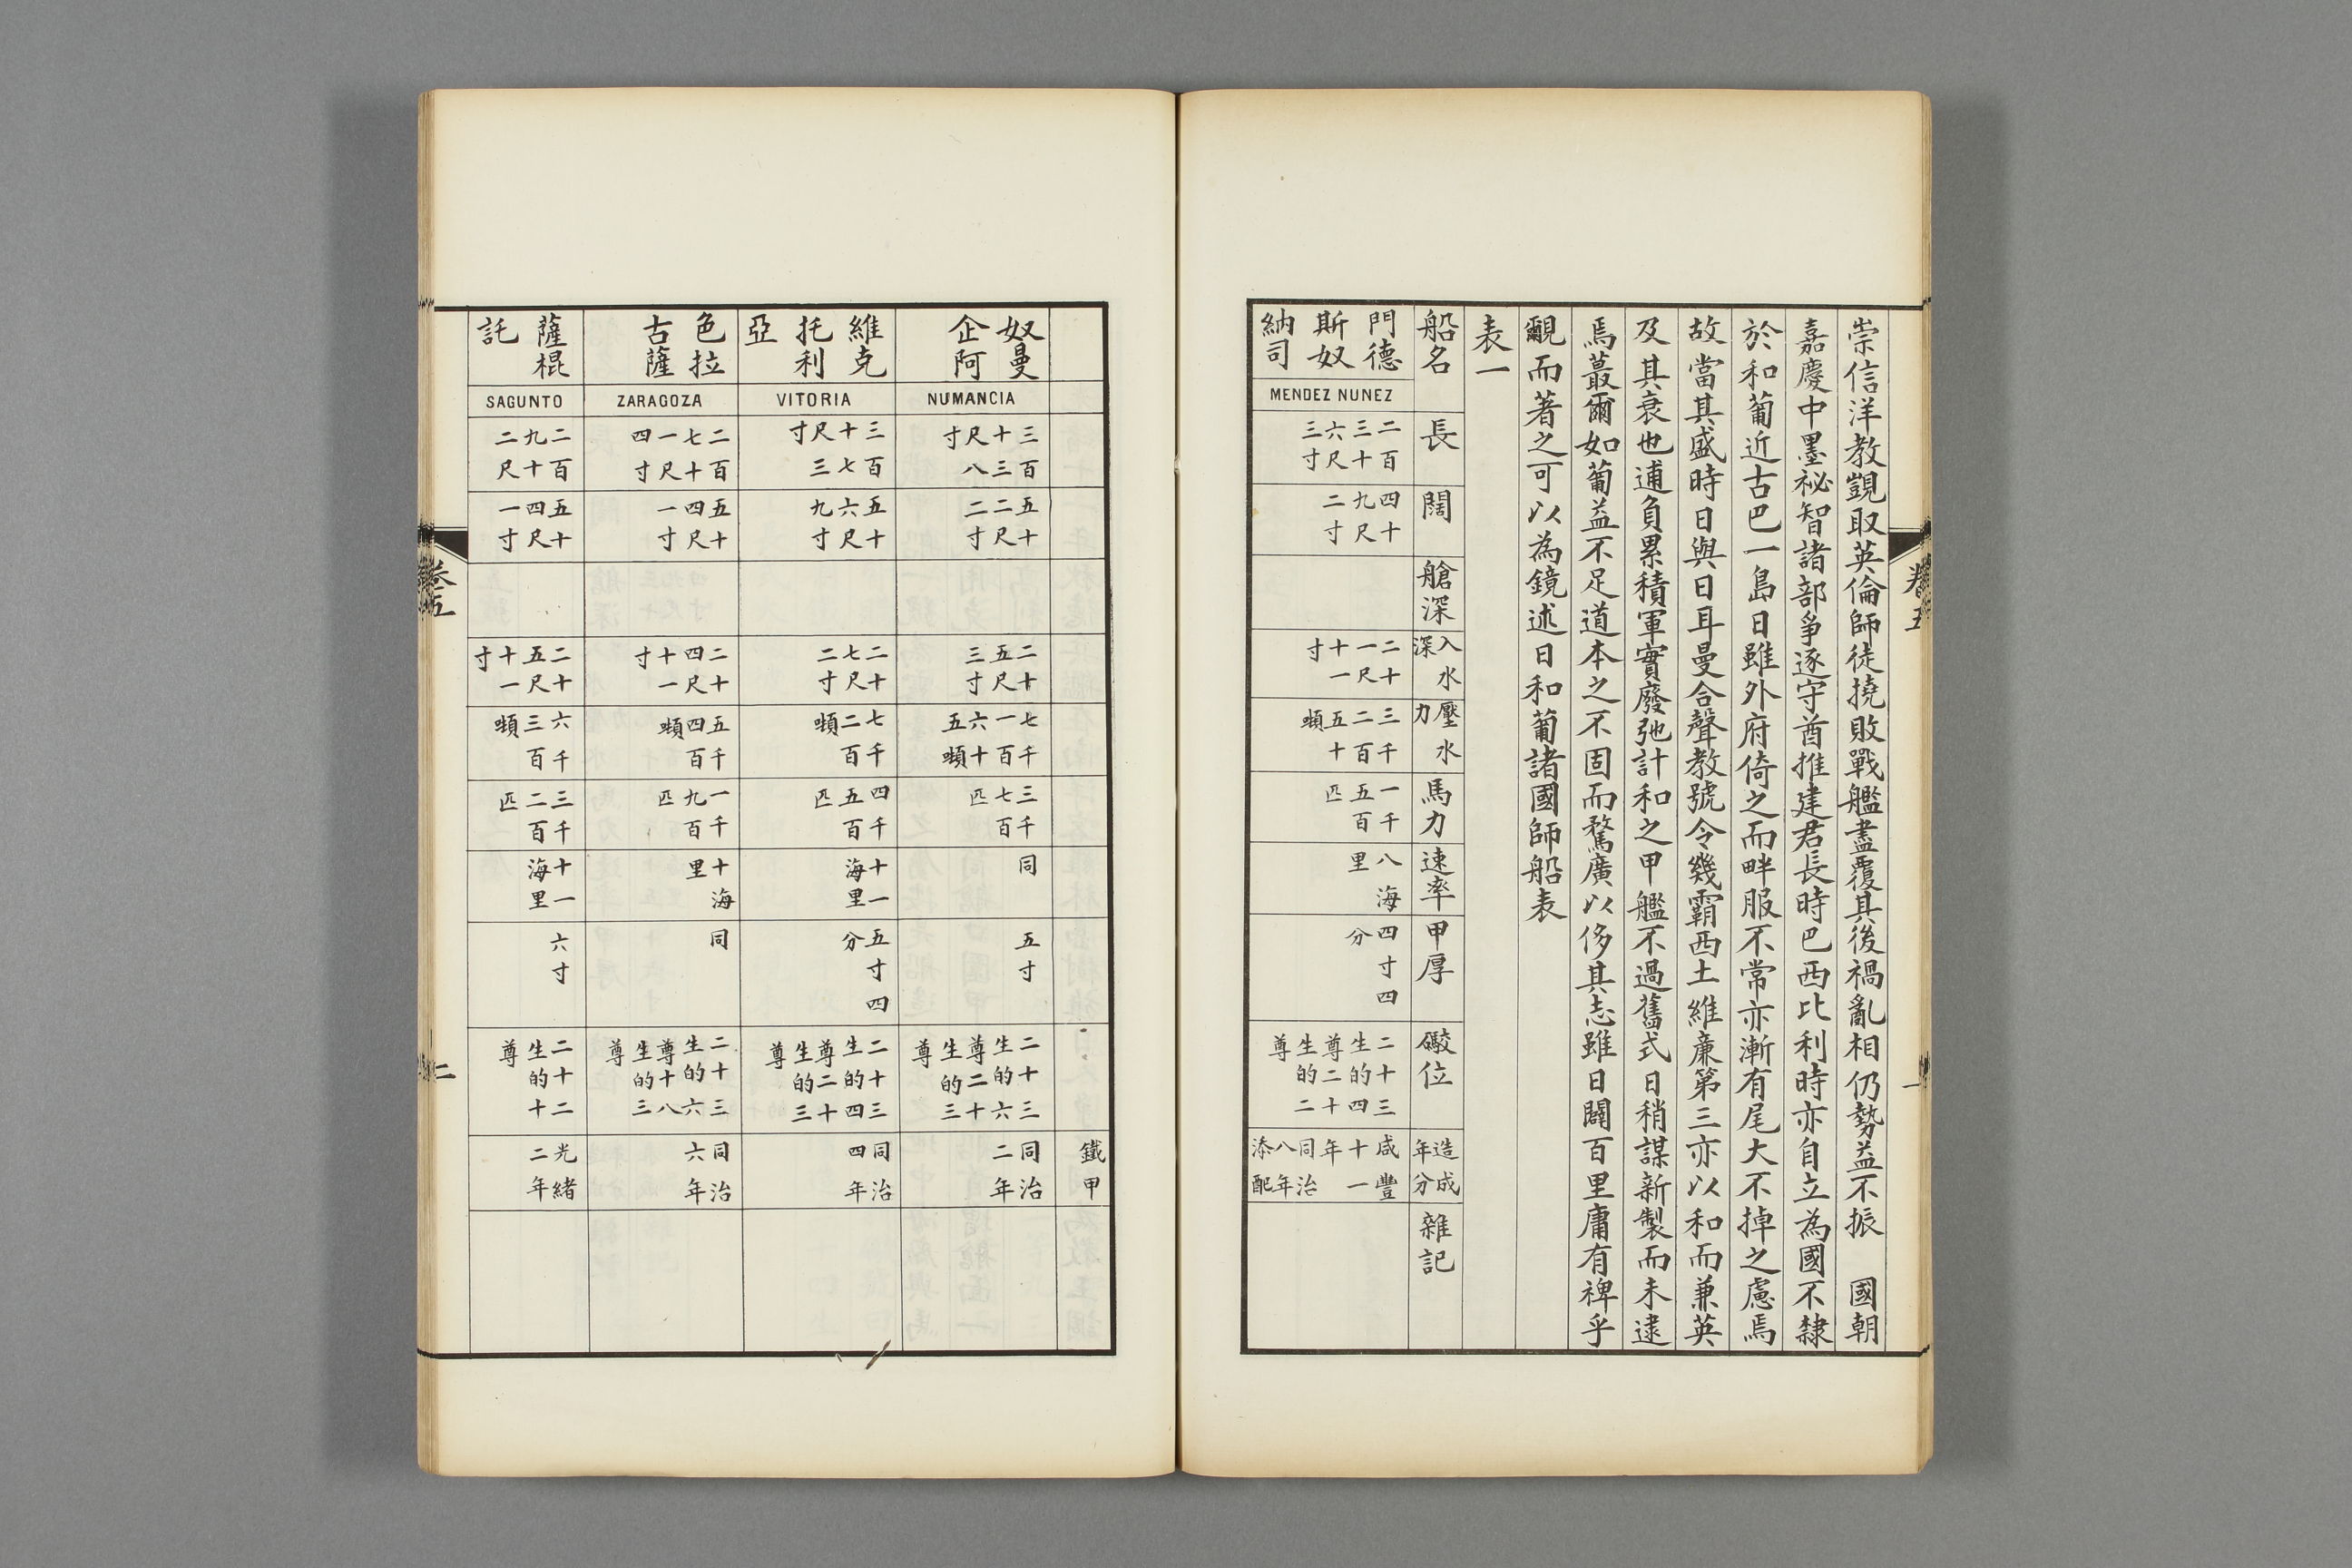 崇信洋教覬取英倫師徒撓敗戰艦盡覆其後禍亂相仍勢益不振　國朝
嘉慶中墨祕智諸部爭逐守酋推建君長時巴西比利時亦自立為國不隸
於和葡近古巴一島日雖外府倚之而畔服不常亦漸有尾大不掉之慮焉
故當其盛時日與日耳曼合聲教號令幾霸西土維廉第三亦以和而兼英
及其衰也逋負累積軍實廢弛計和之甲艦不過舊式日稍謀新製而未逮
焉蕞爾如葡益不足道本之不固而騖廣以侈其志雖日闢百里庸有禆乎
覼而著之可以為鏡述日和葡諸國師船表
表一
船名
長
闊
艙深
入水深
壓水力
馬力
速率
甲厚
礮位
造成年分
雜記
門德斯奴納司
MENDEZ NUNEZ
二百三十六尺三寸
四十九尺二寸
二十一尺十一寸
三千二百五十噸
一千五百匹
八海里
四寸四分
二十三生的四尊二十生的二尊
咸豐十一年同治八年添配
卷五
一
鐵甲
奴曼企阿
NUMANCIA
三百十三尺八寸
五十二尺二寸
二十五尺三寸
七千一百六十五噸
三千七百匹
同
五寸
二十三生的六尊二十生的三尊
同治二年
維克托利亞
VITORIA
三百十七尺三寸
五十六尺九寸
二十七尺二寸
七千二百噸
四千五百匹
十一海里
五寸四分
二十三生的四尊二十生的三尊
同治四年
色拉古薩
ZARAGOZA
二百七十一尺四寸
五十四尺一寸
二十四尺十一寸
五千四百噸
一千九百匹
十海里
同
二十三生的六尊十八生的三尊
同治六年
薩棍託
SAGUNTO
二百九十二尺
五十四尺一寸
二十五尺十一寸
六千三百噸
三千二百匹
十一海里
六寸
二十二生的十尊
光緒二年
卷五
二